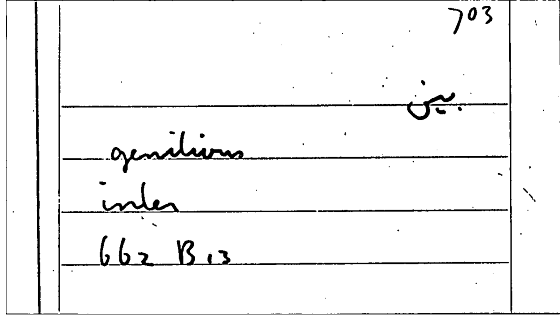 703
بين
genitivus
inter
662 B 13